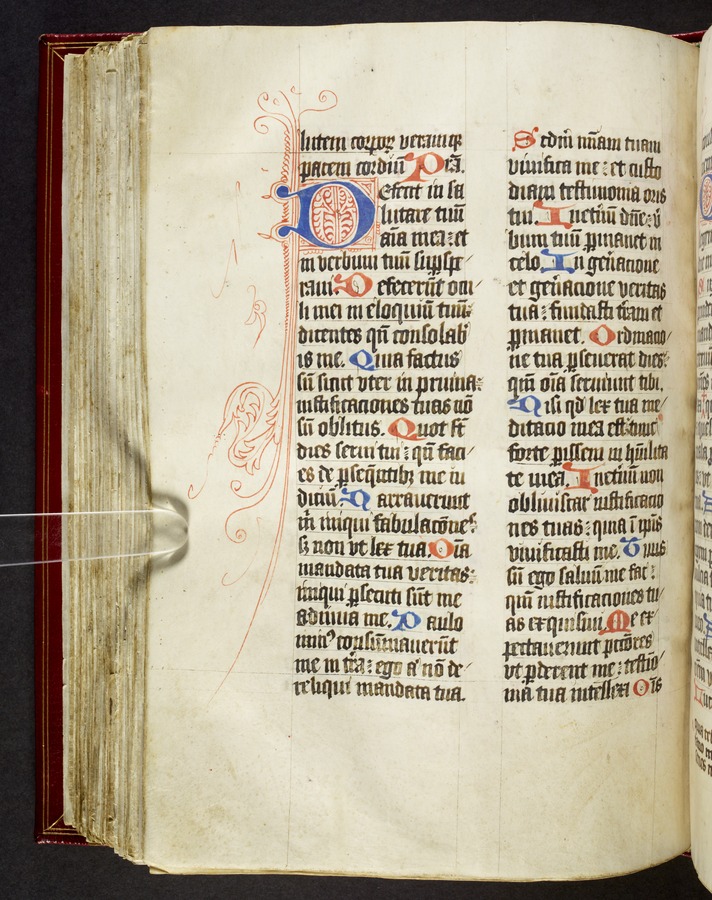 lutem corporꝫ veramqꝫ
pacem cordiū Per̄.
Defecit in sa
lutare tuū
aīa mea: et
in verbum tuū suꝑspe
raui. Defecerūt ocu
li mei in eloquiū tuū:
dicentes qn̄ consolab
is me. Quia factus
sū sicut vter in pruina:
iustificationes tuas nō
sū oblitus. Quot st̄
dies serui tui: qn̄ faci
es de ꝑseqūtibꝫ me iu
diciū. Narrauerunt
m̄ iniqui fabulacōnes
sꝫ non vt lex tua. Oīa
mandata tua veritas:
iniqui ꝑsecuti sūt me
adiuua me. Paulo
minꝰ consūmauerūt
me in tr̄a: ego aͭ nō de
reliqui mandata tua.
Scdm̄ mīam tuam
viuifica me: et custo
diam testimonia oris
tui. Inetnū dn̄e: v̄
bum tuū ꝑmanet in
celo. In gen̄acione
et gen̄acione veritas
tua: fundasti tr̄am et
ꝑmanet. Ordinacio
ne tua ꝑseuerat dies:
qm̄ oīa seruiunt tibi.
Nisi qd̓ lex tua me
ditacio mea est: tunc
forte ꝑissem in hūilita
te mea. Inetnū non
obliuiscar iustificacio
nes tuas: quia ī ip̄is
viuificasti me. Tuus
sū ego saluū me fac:
qm̄ iustificaciones tu
as exquisiui. Me ex
pectauerunt pctōres
vt ꝑderent me: testio
nia tua intellexi Oīs